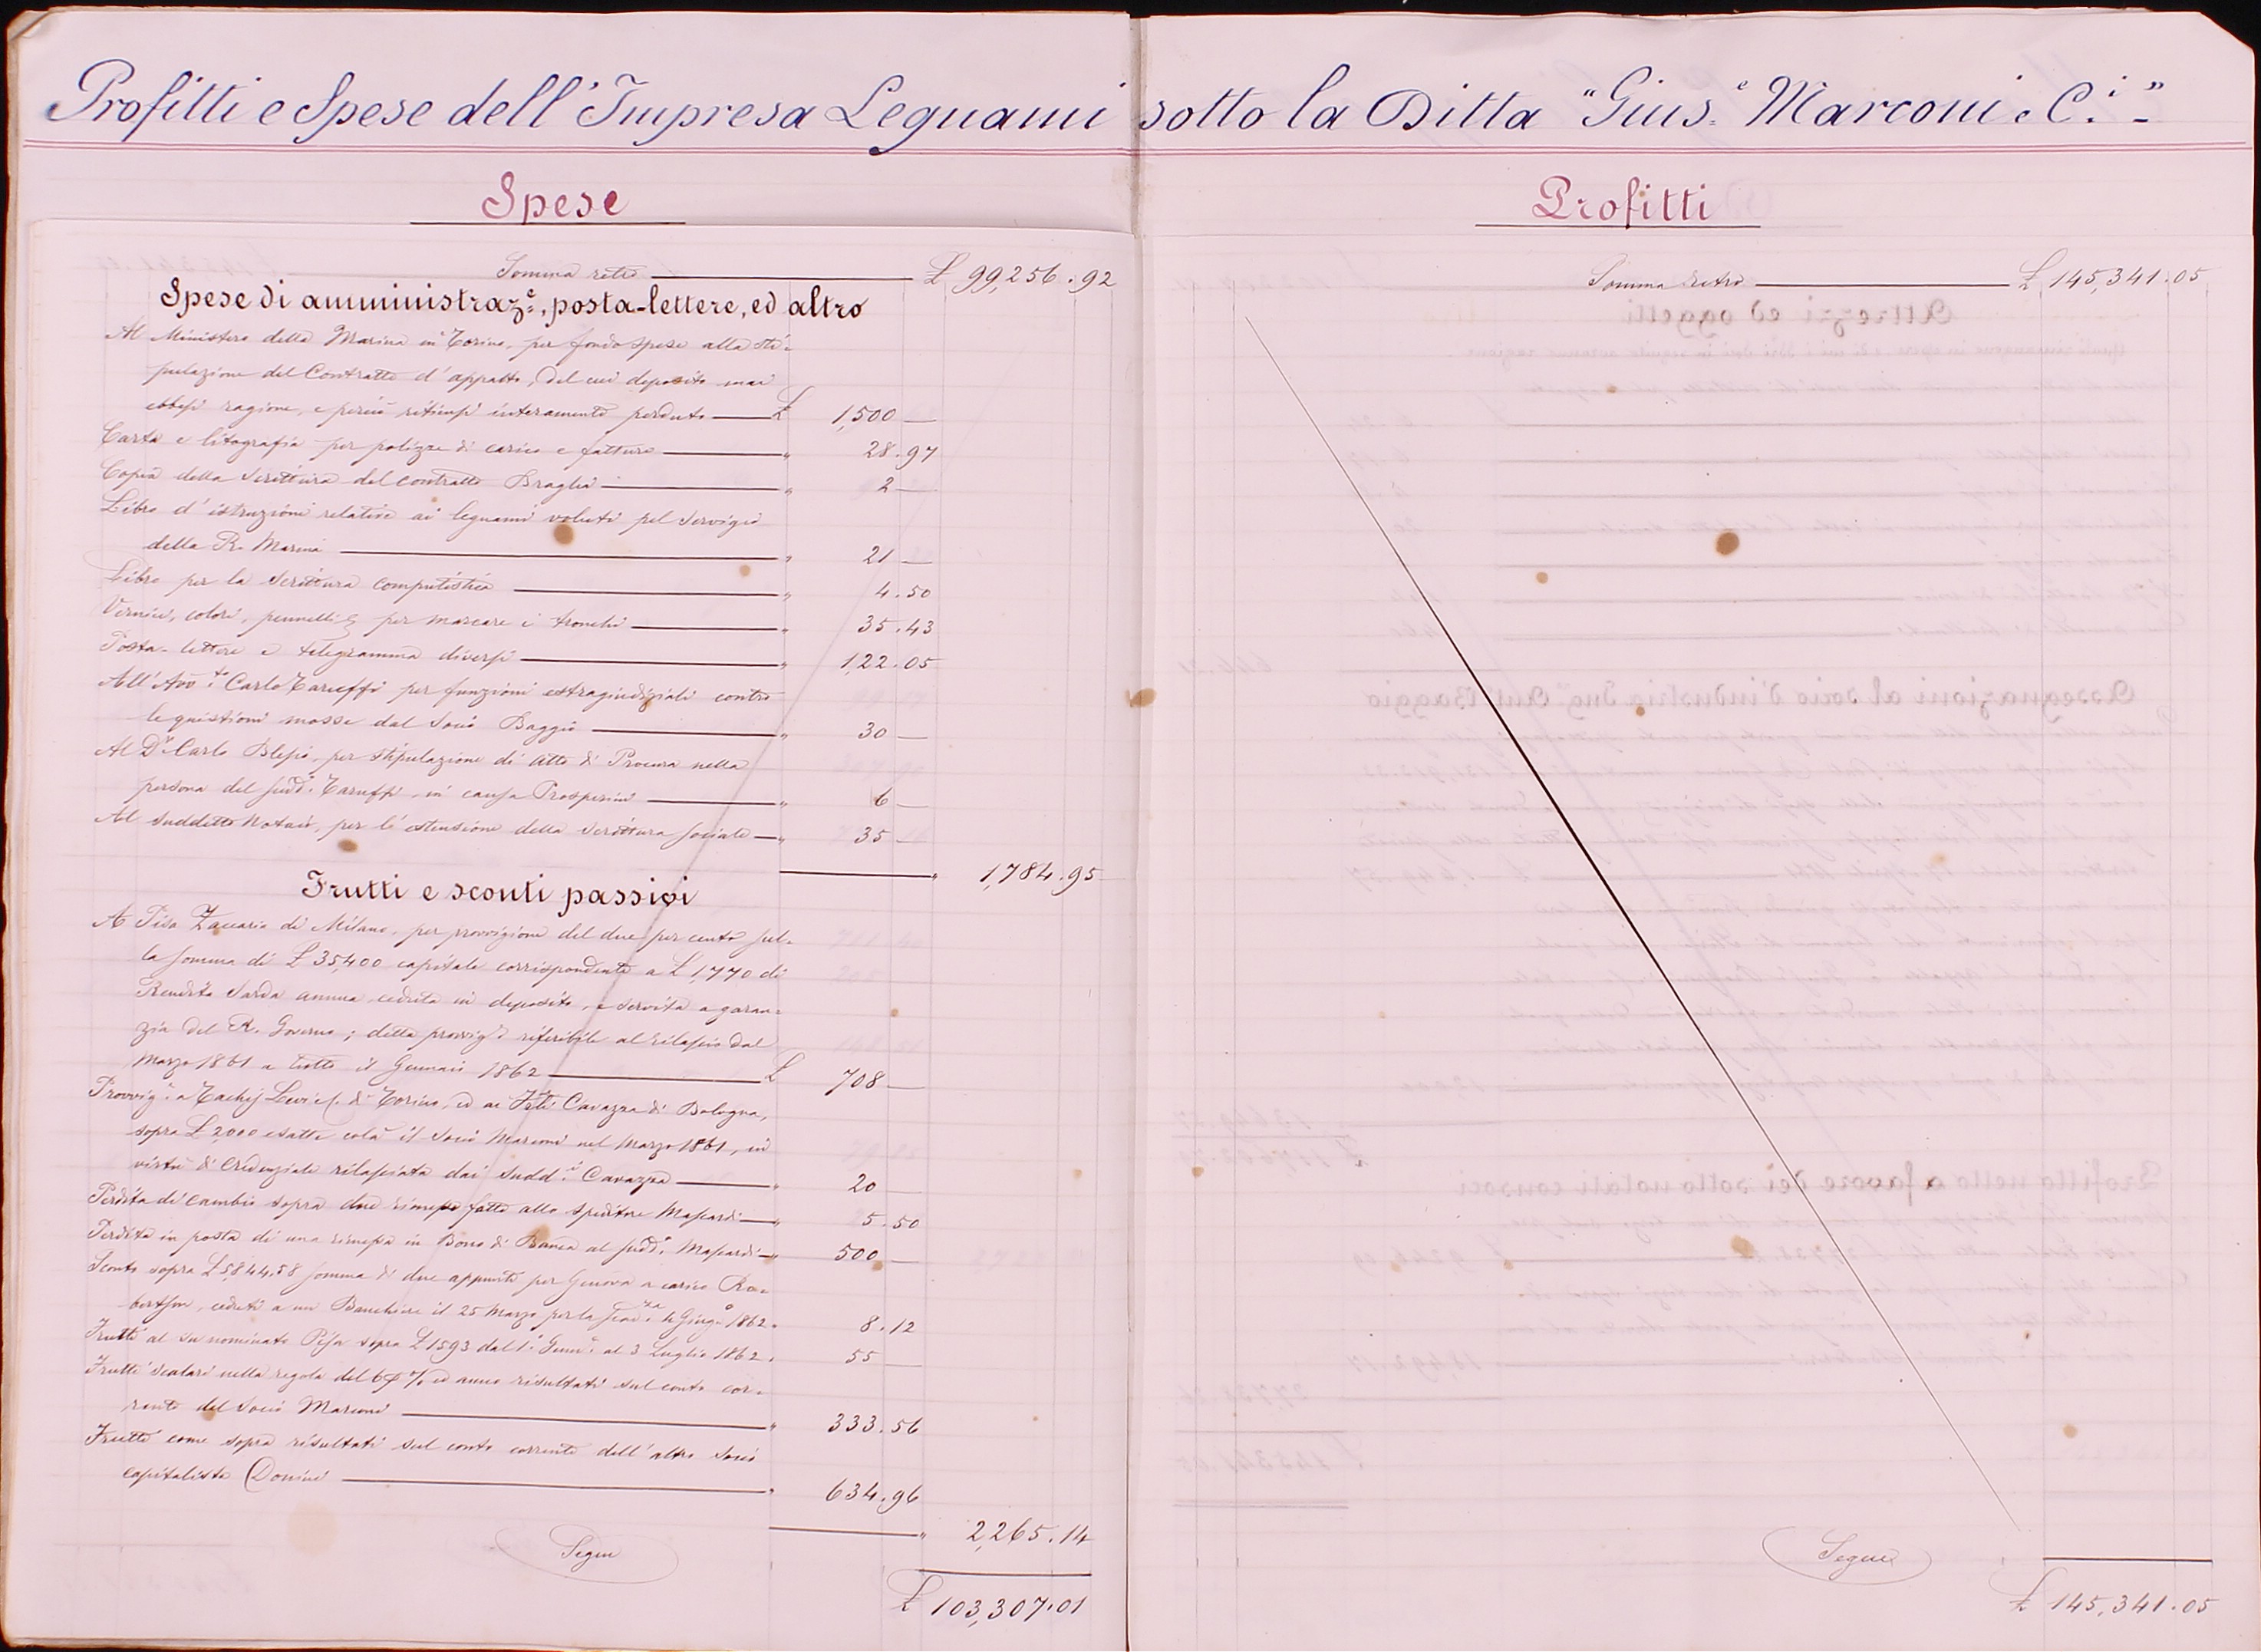 Profitti e Spese dell'Impresa Legnami sotto la Ditta "Gius.e Marconi e C.i"
Spese
Somma retro £ 99,256.92
Spese di amministraz.e, posta-lettere, ed altro
Al Ministero della Marina in Torino, per fondo spese alla sti=
pulazione del Contratto d'appalto, del cui deposito mai
ebbesi ragione, e perciò ritiensi interamente perduto £ 1,500 —
Carta e litografia per polizze di carico e fatture " 28.97
Copia della Scrittura del contratto Braglia " 2 —
Libro d'istruzioni relative ai legnami voluti pel servigio
della R. Marina " 21 —
Libro per la Scrittura computistica " 4.50
Vernici, colori, pennelli per marcare i tronchi " 35.43
Posta-lettere e telegramma diversi " 122.05
All'Avv.to Carlo Taruffi per funzioni estragiudiziali contro
le quistioni mosse dal Socio Baggio " 30 —
Al Dr. Carlo Blesio, per stipulazione di atto di Procura nella
persona del sudd.o Taruffi, in causa Prosperini " 6 —
Al suddetto Notaio, per l'estensione della Scrittura sociale " 35 —
" 1,784.95
Frutti e sconti passivi
A Pisa Zaccaria di Milano, per provvigione del due per cento sul=
la somma di £ 35,400 capitale corrispondente a £ 1,770 di
Rendita Sarda annua ceduta in deposito, e servita a garan=
zia del R. Governo; detta provvig.e riferibile al rilascio dal
Marzo 1861 a tutto il Gennaio 1862 £ 708 —
Provvig.e a di Torino, ed ai F.lli Cavazza di Bologna,
sopra £ 2,000 esatte colà il Socio Marconi nel Marzo 1861, in
virtù di Credenziale rilasciata dai Sudd.i Cavazza " 20 —
Perdita di cambio sopra due rimesse fatte allo speditore Mascardi " 5.50
Perdita in posta di una rimessa in Bono di Banca al sudd.o Mascardi " 500 —
Sconto sopra £ 5,844.58 somma di due appunti per Genova a carico Ro=
bertson, ceduti a un Banchiere il 25 Marzo per la Scad.za 4 Giug.o 1862 " 8.12
Frutti al su nominato Pisa sopra £ 1593 dal 1.o Genn.o al 3 Luglio 1862 " 55 —
Frutti scalari nella regola del 6 % ed anno risultati sul conto cor=
rente del Socio Marconi " 333.56
Frutti come sopra risultati sul conto corrente dell'altro Socio
capitalista Donini " 634.96
" 2,265.14
Segue
£ 103,307.01
Profitti
Somma retro £ 145,341.05
Segue
£ 145,341.05